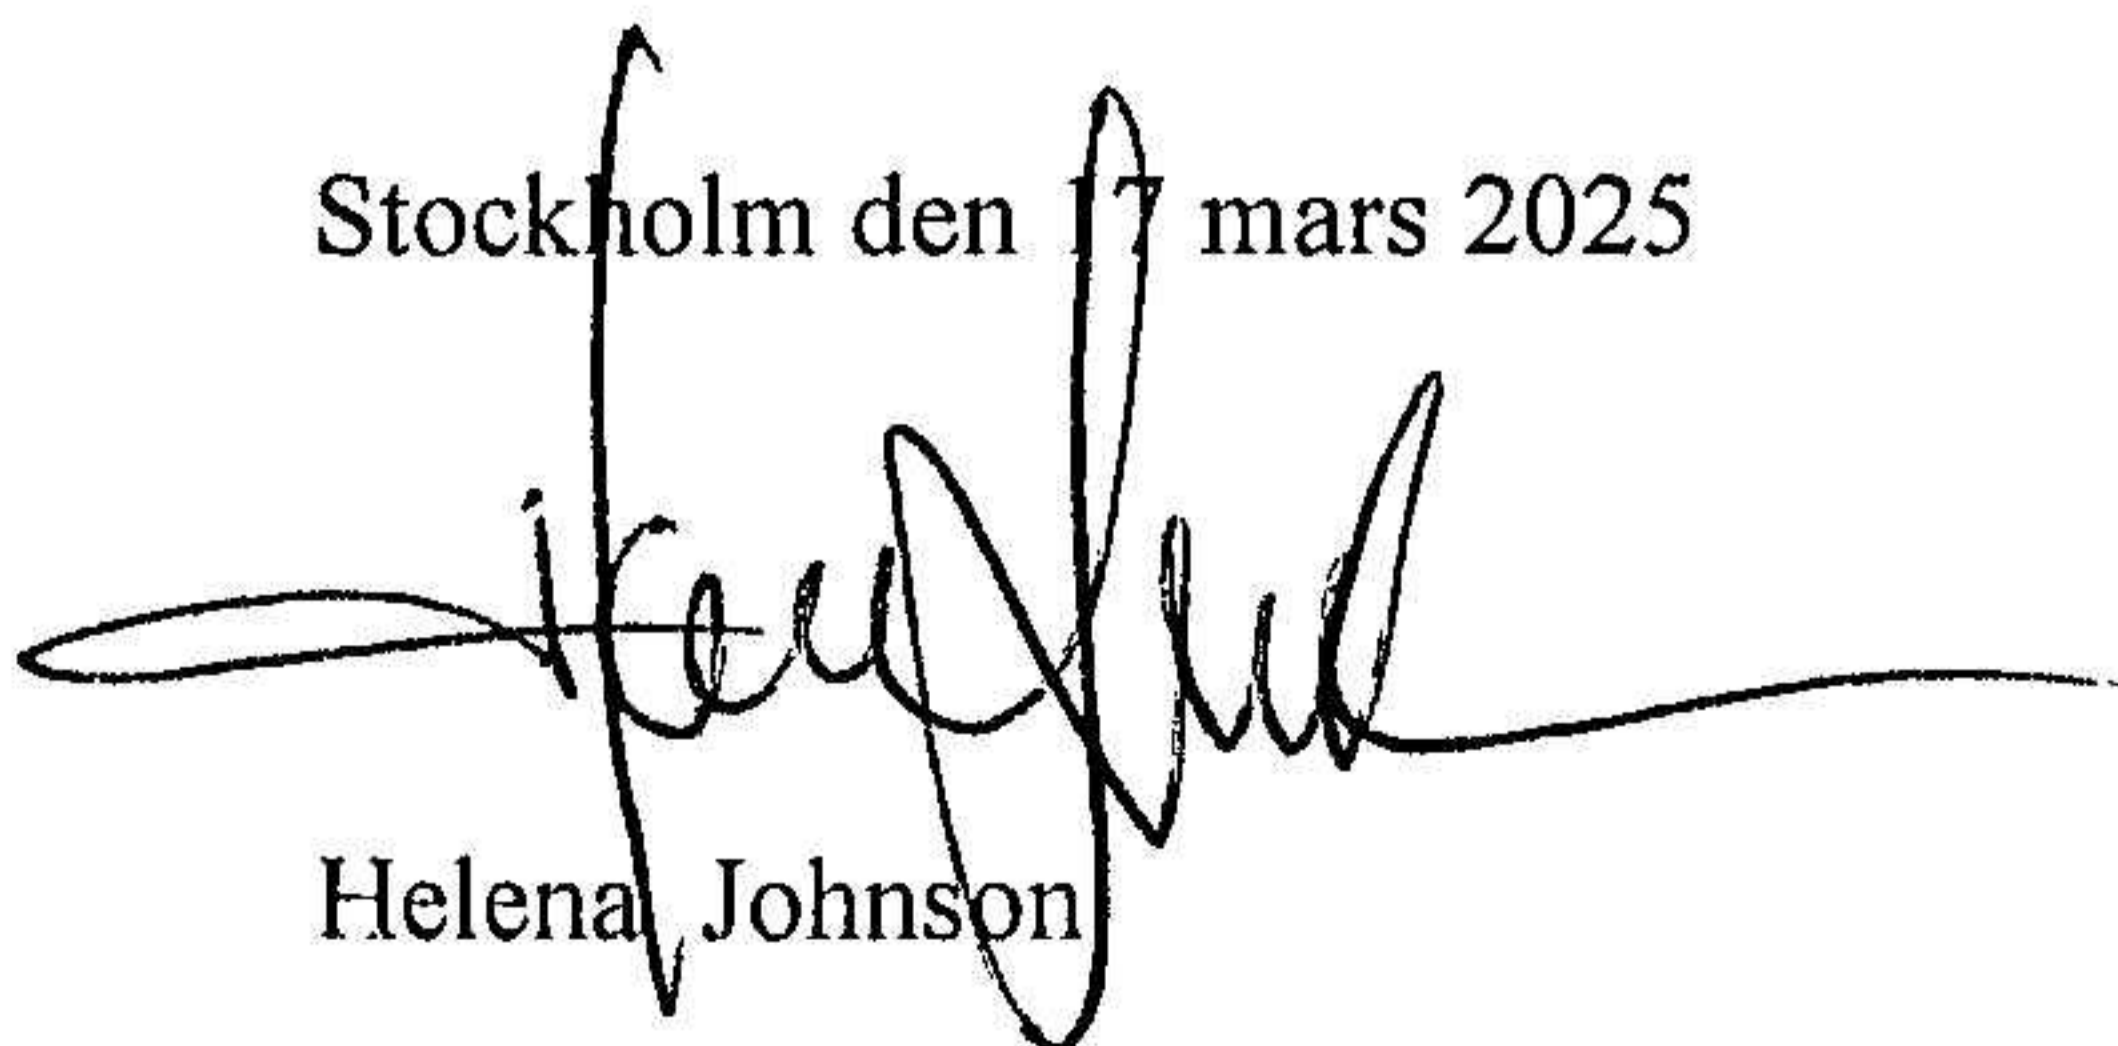 Stockholm den 17 mars 2025
Helena Johnson